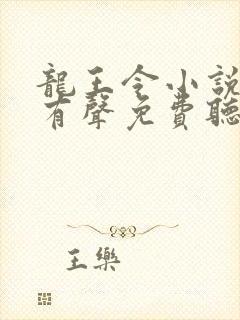 龍王令小說
有聲免費聽
王樂